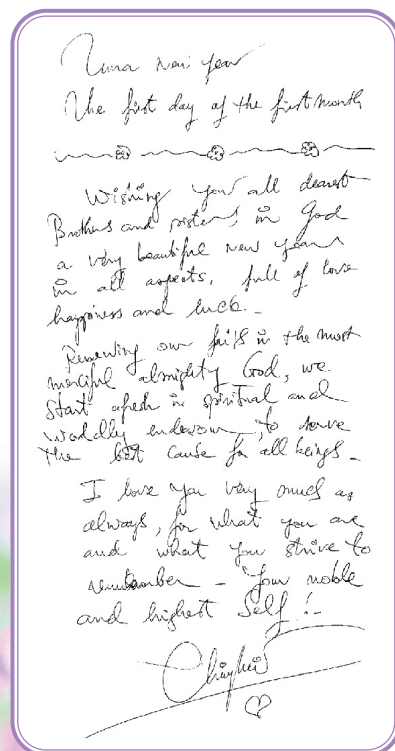 Luna New Year
The first day of the first month
Wishing you all dearest
Brothers and sisters, in God
a very beautiful New Year
in all aspects, full of love
happiness and luck -
Renewing our faith in the most
merciful almighty God, we
start afresh in spiritual and
worldly endeavour, to serve
the best cause for all beings -
I love you very much as
always, for what you are
and what you strive to
remember - Your noble
and highest Self ! -